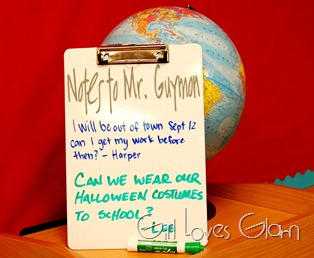 Notes to Mr. Guymon
I will be out of town Sept 12
can I get my work before
then? - Harper
CAN WE WEAR OUR
HALLOWEEN COSTUMES
TO SCHOOL?
LEE
Girl Loves Glam